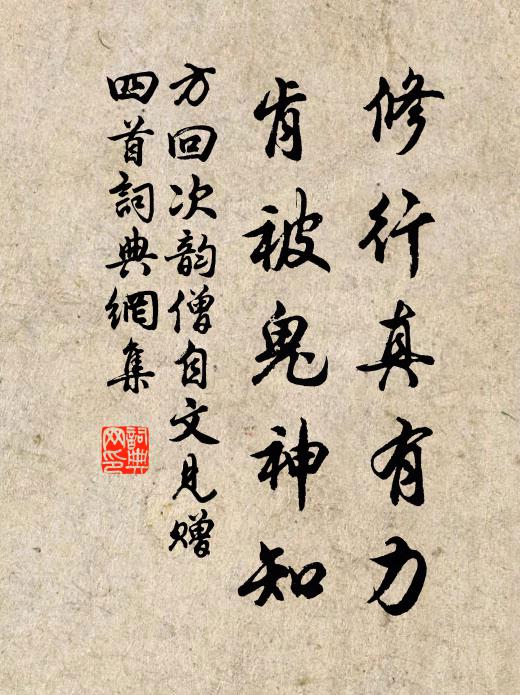 修行真有力
肯被鬼神知
方回次韵僧自文见赠
四首詞典網集
詞典
网印